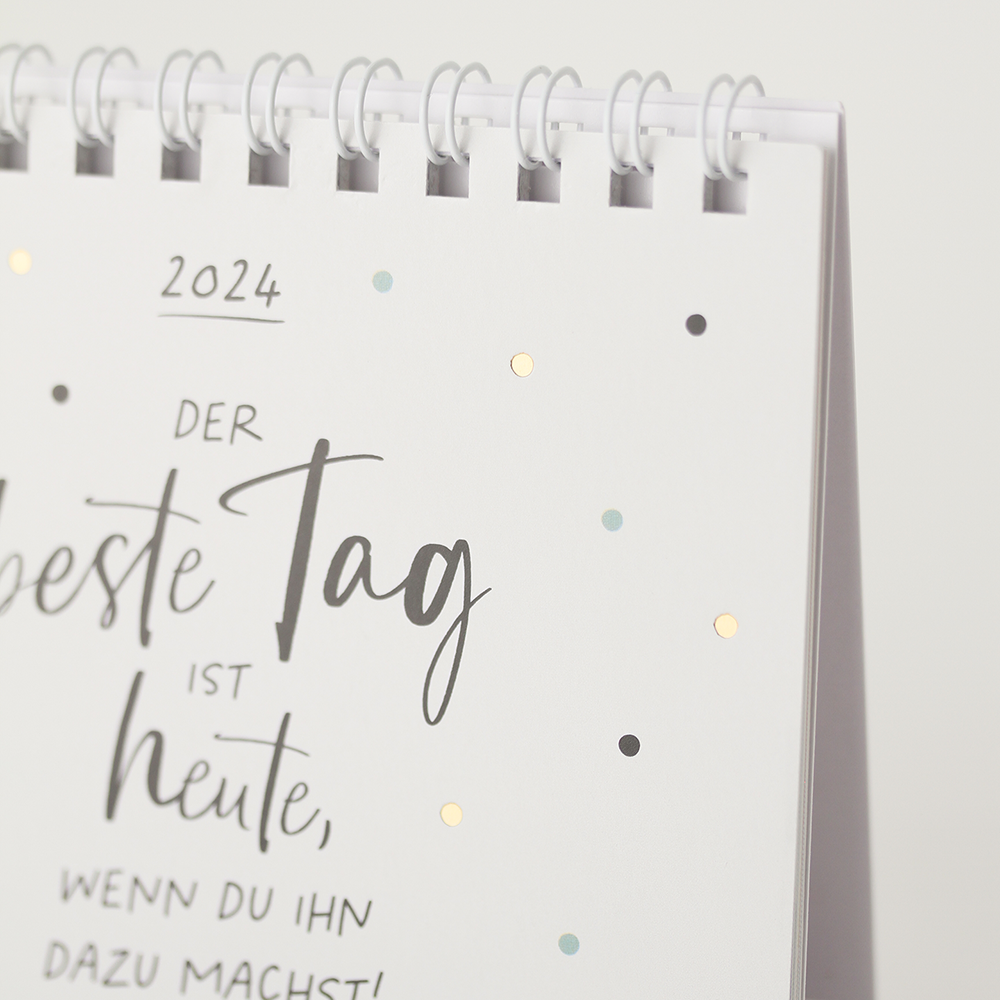 2024
DER
beste Tag
IST
heute,
WENN DU IHN
DAZU MACHST!